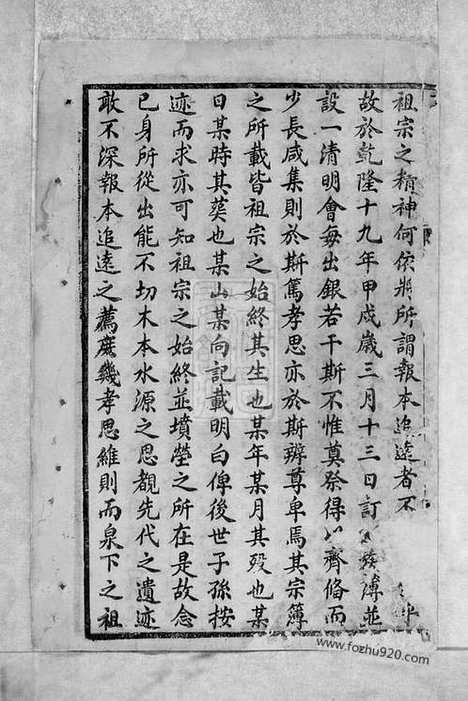 祖宗之精神何依將所謂報本追遠者不
故於乾隆十九年甲戌歲三月十三日訂 簿並
設一清明會每出銀若干斯不惟奠祭得以齊俻而
少長咸集則於斯篤孝思亦於斯辨尊卑焉其宗簿
之所載皆祖宗之始終其生也某年某月其歿也某
日某時其葬也某山某向記載明白俾後世子孫按
迹而求亦可知祖宗之始終並墳塋之所在是故念
已身所從出能不切木本水源之思覩先代之遺迹
敢不深報本追遠之薦庶幾孝思維則而泉下之祖
www.fozhu920.com